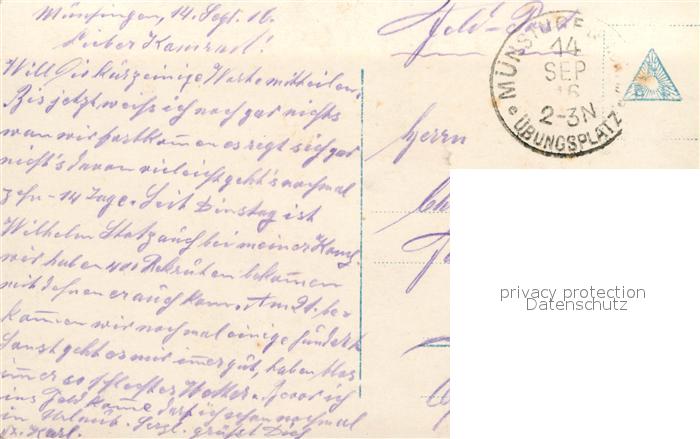 Münsingen, 14. Sept. 16.
Lieber Kamrad!
Will Dir kurz einige Worte mitteilen.
Bis jetzt weiß ich noch gar nichts
wan wir fortkommen es regt sich gar
nicht's davon vieleicht geht's nochmal
zehn-14 Tage. Seit Dinstag ist
Wilhelm Stotz auch bei meiner Komp.
wir haben 400 Rekruten bekommen
mit denen er auch kam. Am 21. be-
kommen wir nochmal einige hundert
Sonst geht es mir immer gut, haben
immer so schlechtes Wetter. Bevor ich
ins Feld komme darf ich schon nochmal
in Urlaub. Herzl. grüßt Dich
Karl.
Feld-Post
MÜNSINGEN
14
SEP
16
2-3N
e ÜBUNGSPLATZ
Herrn
privacy protection
Datenschutz